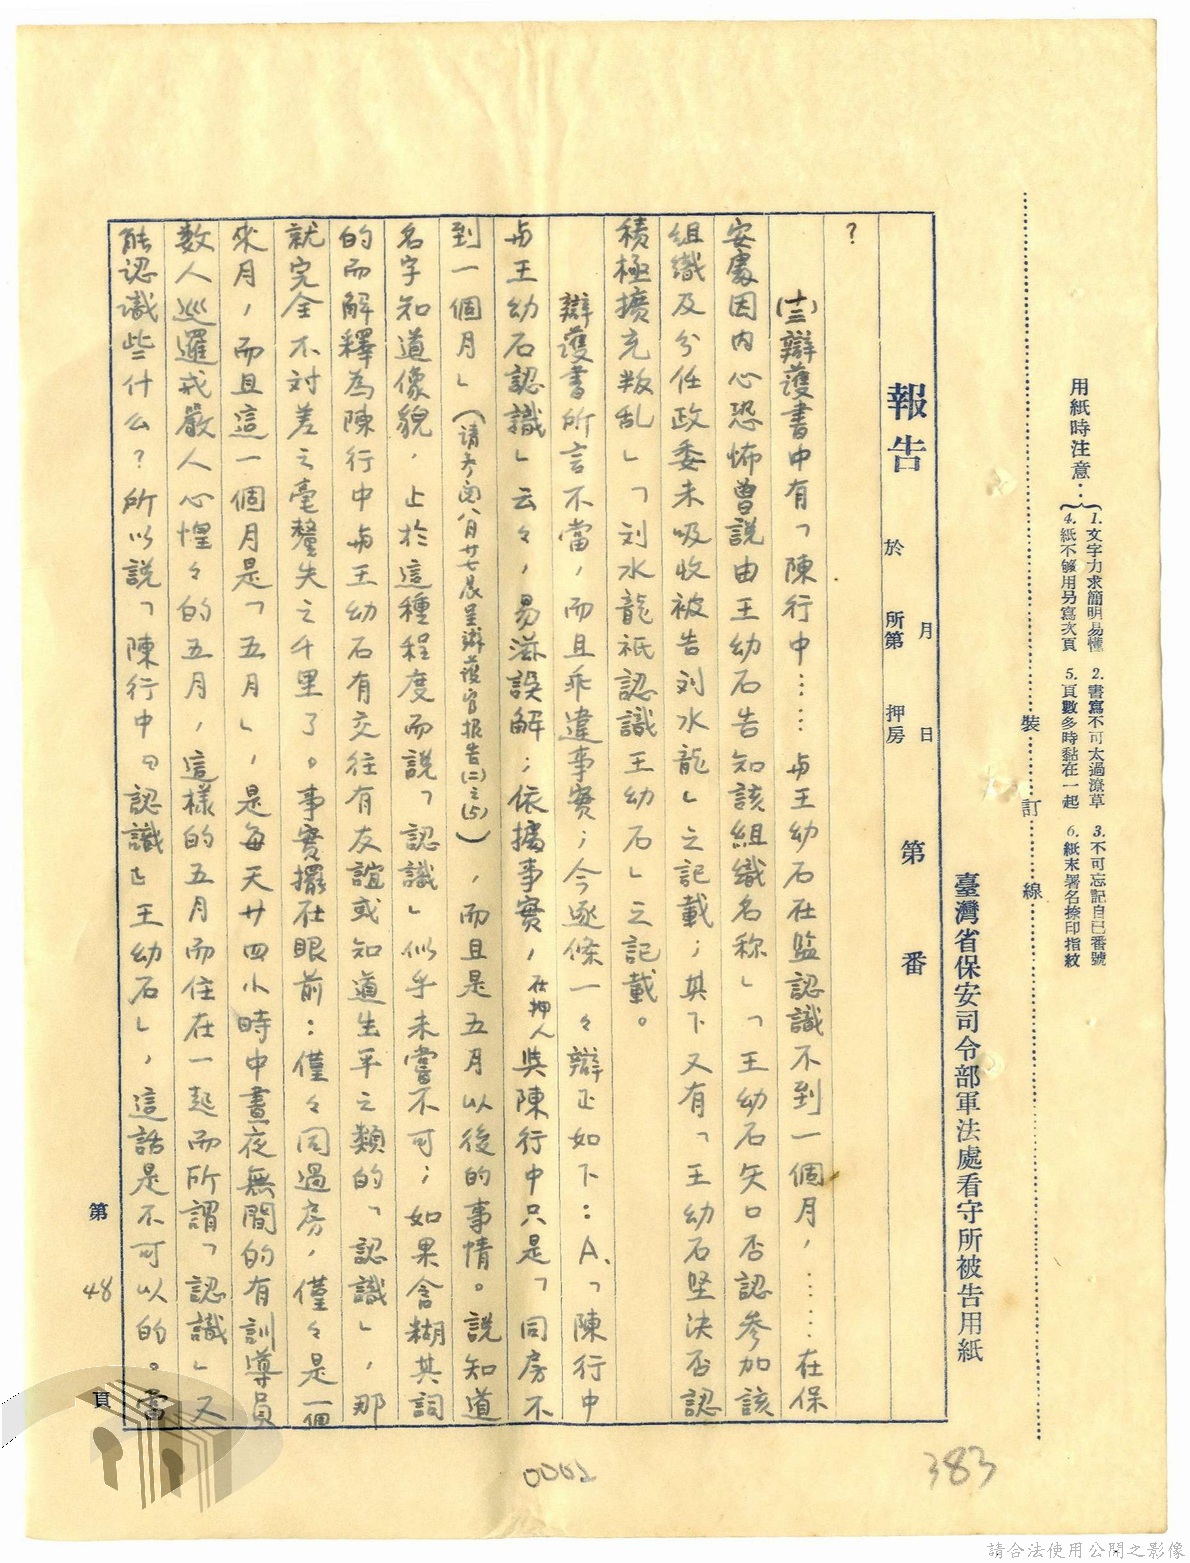 用紙時注意…
1.文字力求簡明易懂 2.書寫不可太過潦草 3.不可忘記自己番號
4.紙不够用另寫次頁 5.頁數多時黏在一起 6.紙末署名捺印指紋
裝訂線
臺灣省保安司令部軍法處看守所被告用紙
報告 於 月 日 所第 押房 第 番
?
(十三)辯護書中有「陳行中……與王幼石在監認識不到一個月,……在保
安處因内心恐怖曾説由王幼石告知該組織名称」「王幼石矢口否認参加該
組織及分任政委未吸收被告刘水龍」之記載;其下又有「王幼石堅決否認
積極擴充叛乱」「刘水龍祇認識王幼石」之記載。
辯護書所言不當,而且乖違事實;今逐條一々辯正如下:A、「陳行中
與王幼石認識」云々,易滋誤解;依據事實,在押人吳陳行中只是「同房不
到一個月」(請参閱八月廿七晨呈辯護官报告(二)之(5)),而且是五月以後的事情。説知道
名字知道像貌,止於這種程度而説「認識」似乎未嘗不可;如果含糊其詞
的而解釋為陳行中與王幼石有交往有友誼或知道生平之類的「認識」,那
就完全不対差之毫釐失之千里了。事實擺在眼前:僅々同過房,僅々是一個
來月,而且這一個月是「五月」,是每天廿四小時中晝夜無間的有訓導員
数人巡邏戒嚴人心惶々的五月,這樣的五月而住在一起而所謂「認識」又
能認識些什么?所以説「陳行中『認識』王幼石」,這話是不可以的。當
第48頁
0002
383
請合法使用公開之影像